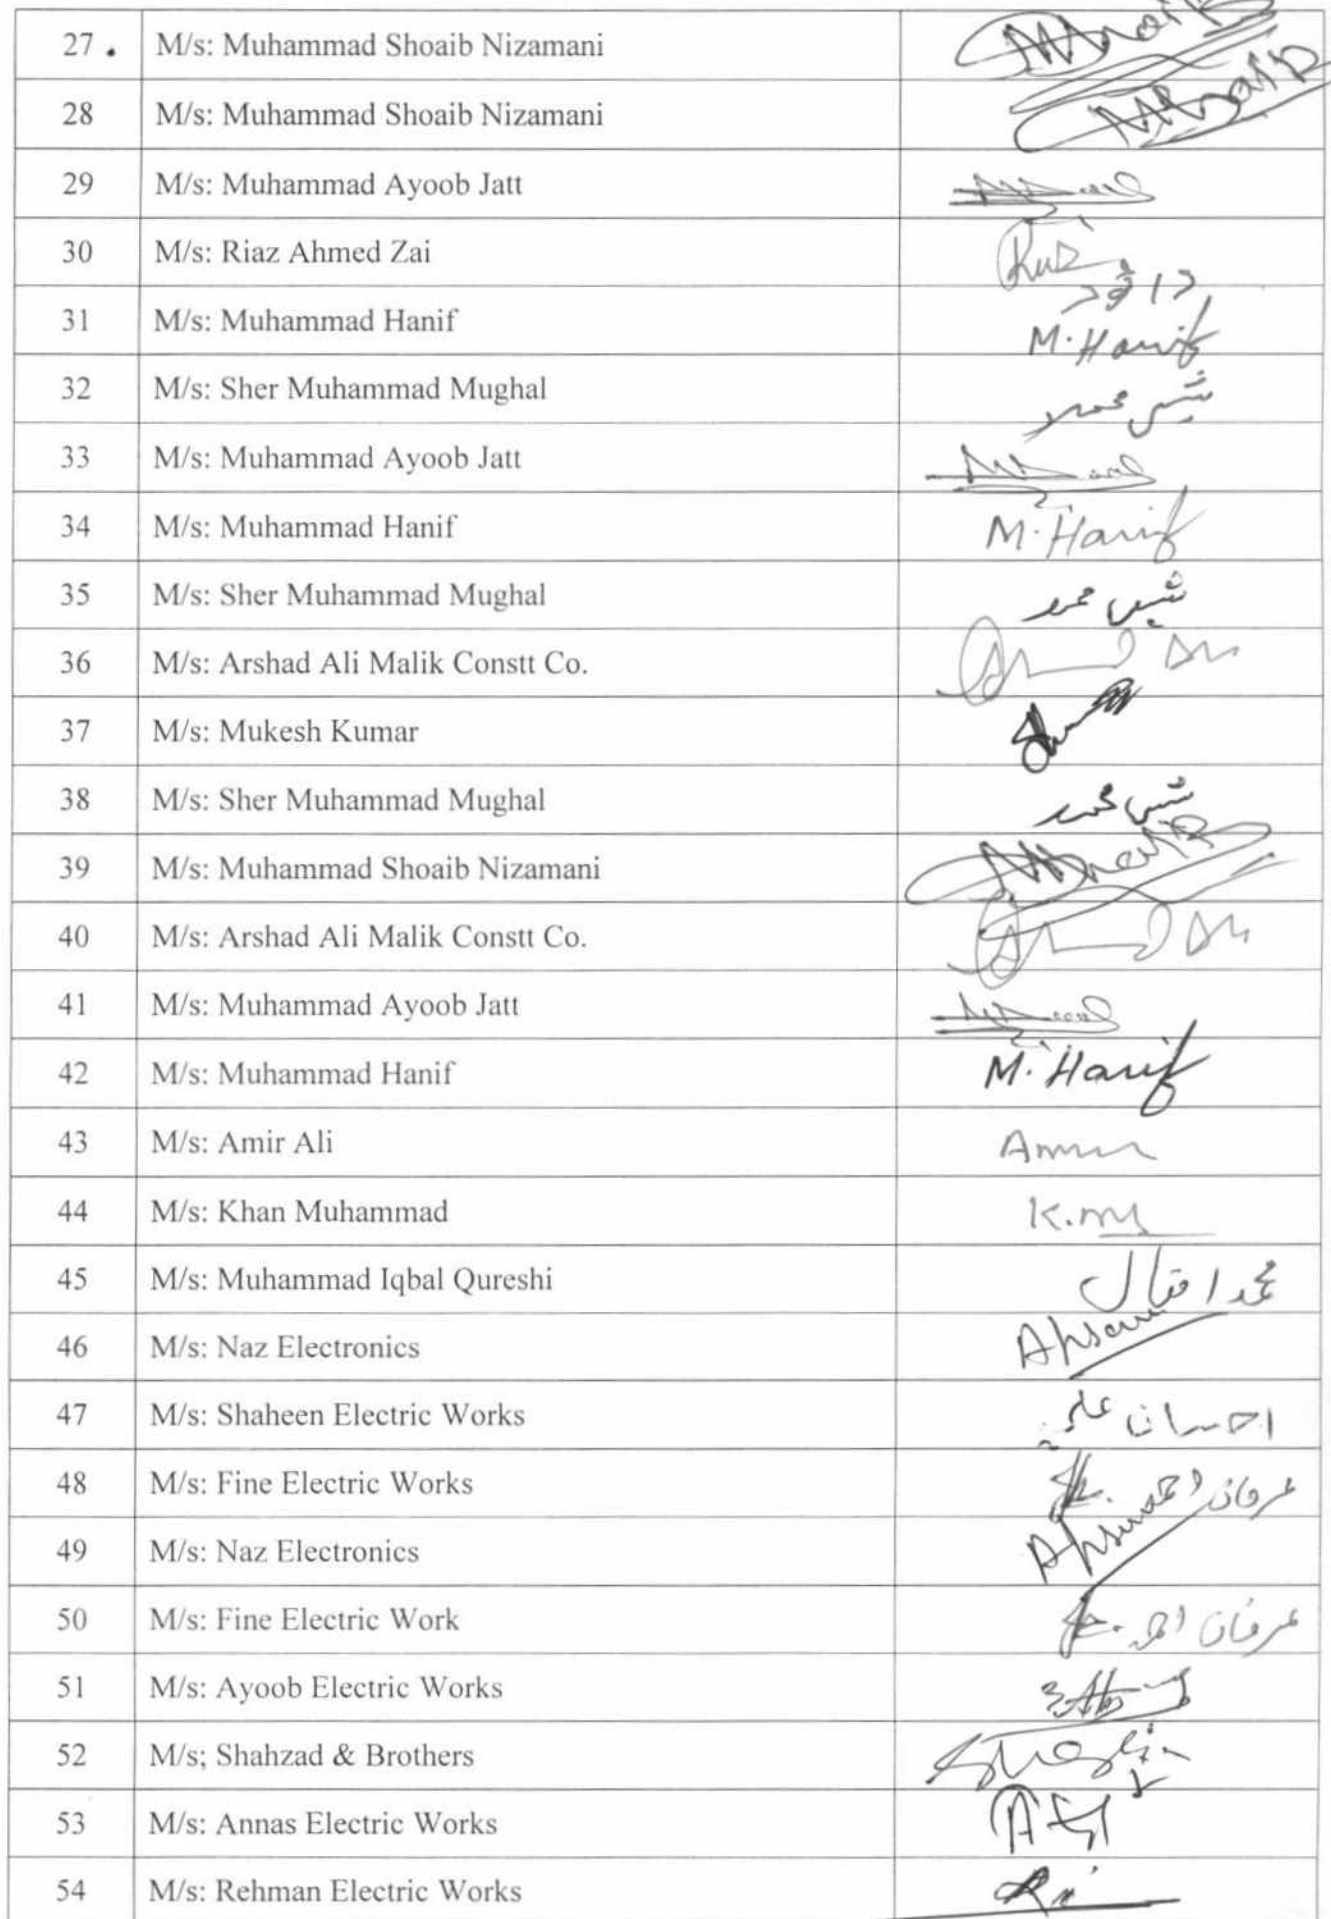 27. M/s: Muhammad Shoaib Nizamani
28 M/s: Muhammad Shoaib Nizamani
29 M/s: Muhammad Ayoob Jatt
30 M/s: Riaz Ahmed Zai
31 M/s: Muhammad Hanif M. Hanif
32 M/s: Sher Muhammad Mughal شیر محمد
33 M/s: Muhammad Ayoob Jatt
34 M/s: Muhammad Hanif M. Hanif
35 M/s: Sher Muhammad Mughal شیر محمد
36 M/s: Arshad Ali Malik Constt Co.
37 M/s: Mukesh Kumar
38 M/s: Sher Muhammad Mughal شیر محمد
39 M/s: Muhammad Shoaib Nizamani
40 M/s: Arshad Ali Malik Constt Co.
41 M/s: Muhammad Ayoob Jatt
42 M/s: Muhammad Hanif M. Hanif
43 M/s: Amir Ali
44 M/s: Khan Muhammad
45 M/s: Muhammad Iqbal Qureshi محمد اقبال
46 M/s: Naz Electronics Ahsan
47 M/s: Shaheen Electric Works احسان علی
48 M/s: Fine Electric Works عرفان احمد
49 M/s: Naz Electronics Ahsan
50 M/s: Fine Electric Work عرفان احمد
51 M/s: Ayoob Electric Works
52 M/s; Shahzad & Brothers
53 M/s: Annas Electric Works
54 M/s: Rehman Electric Works